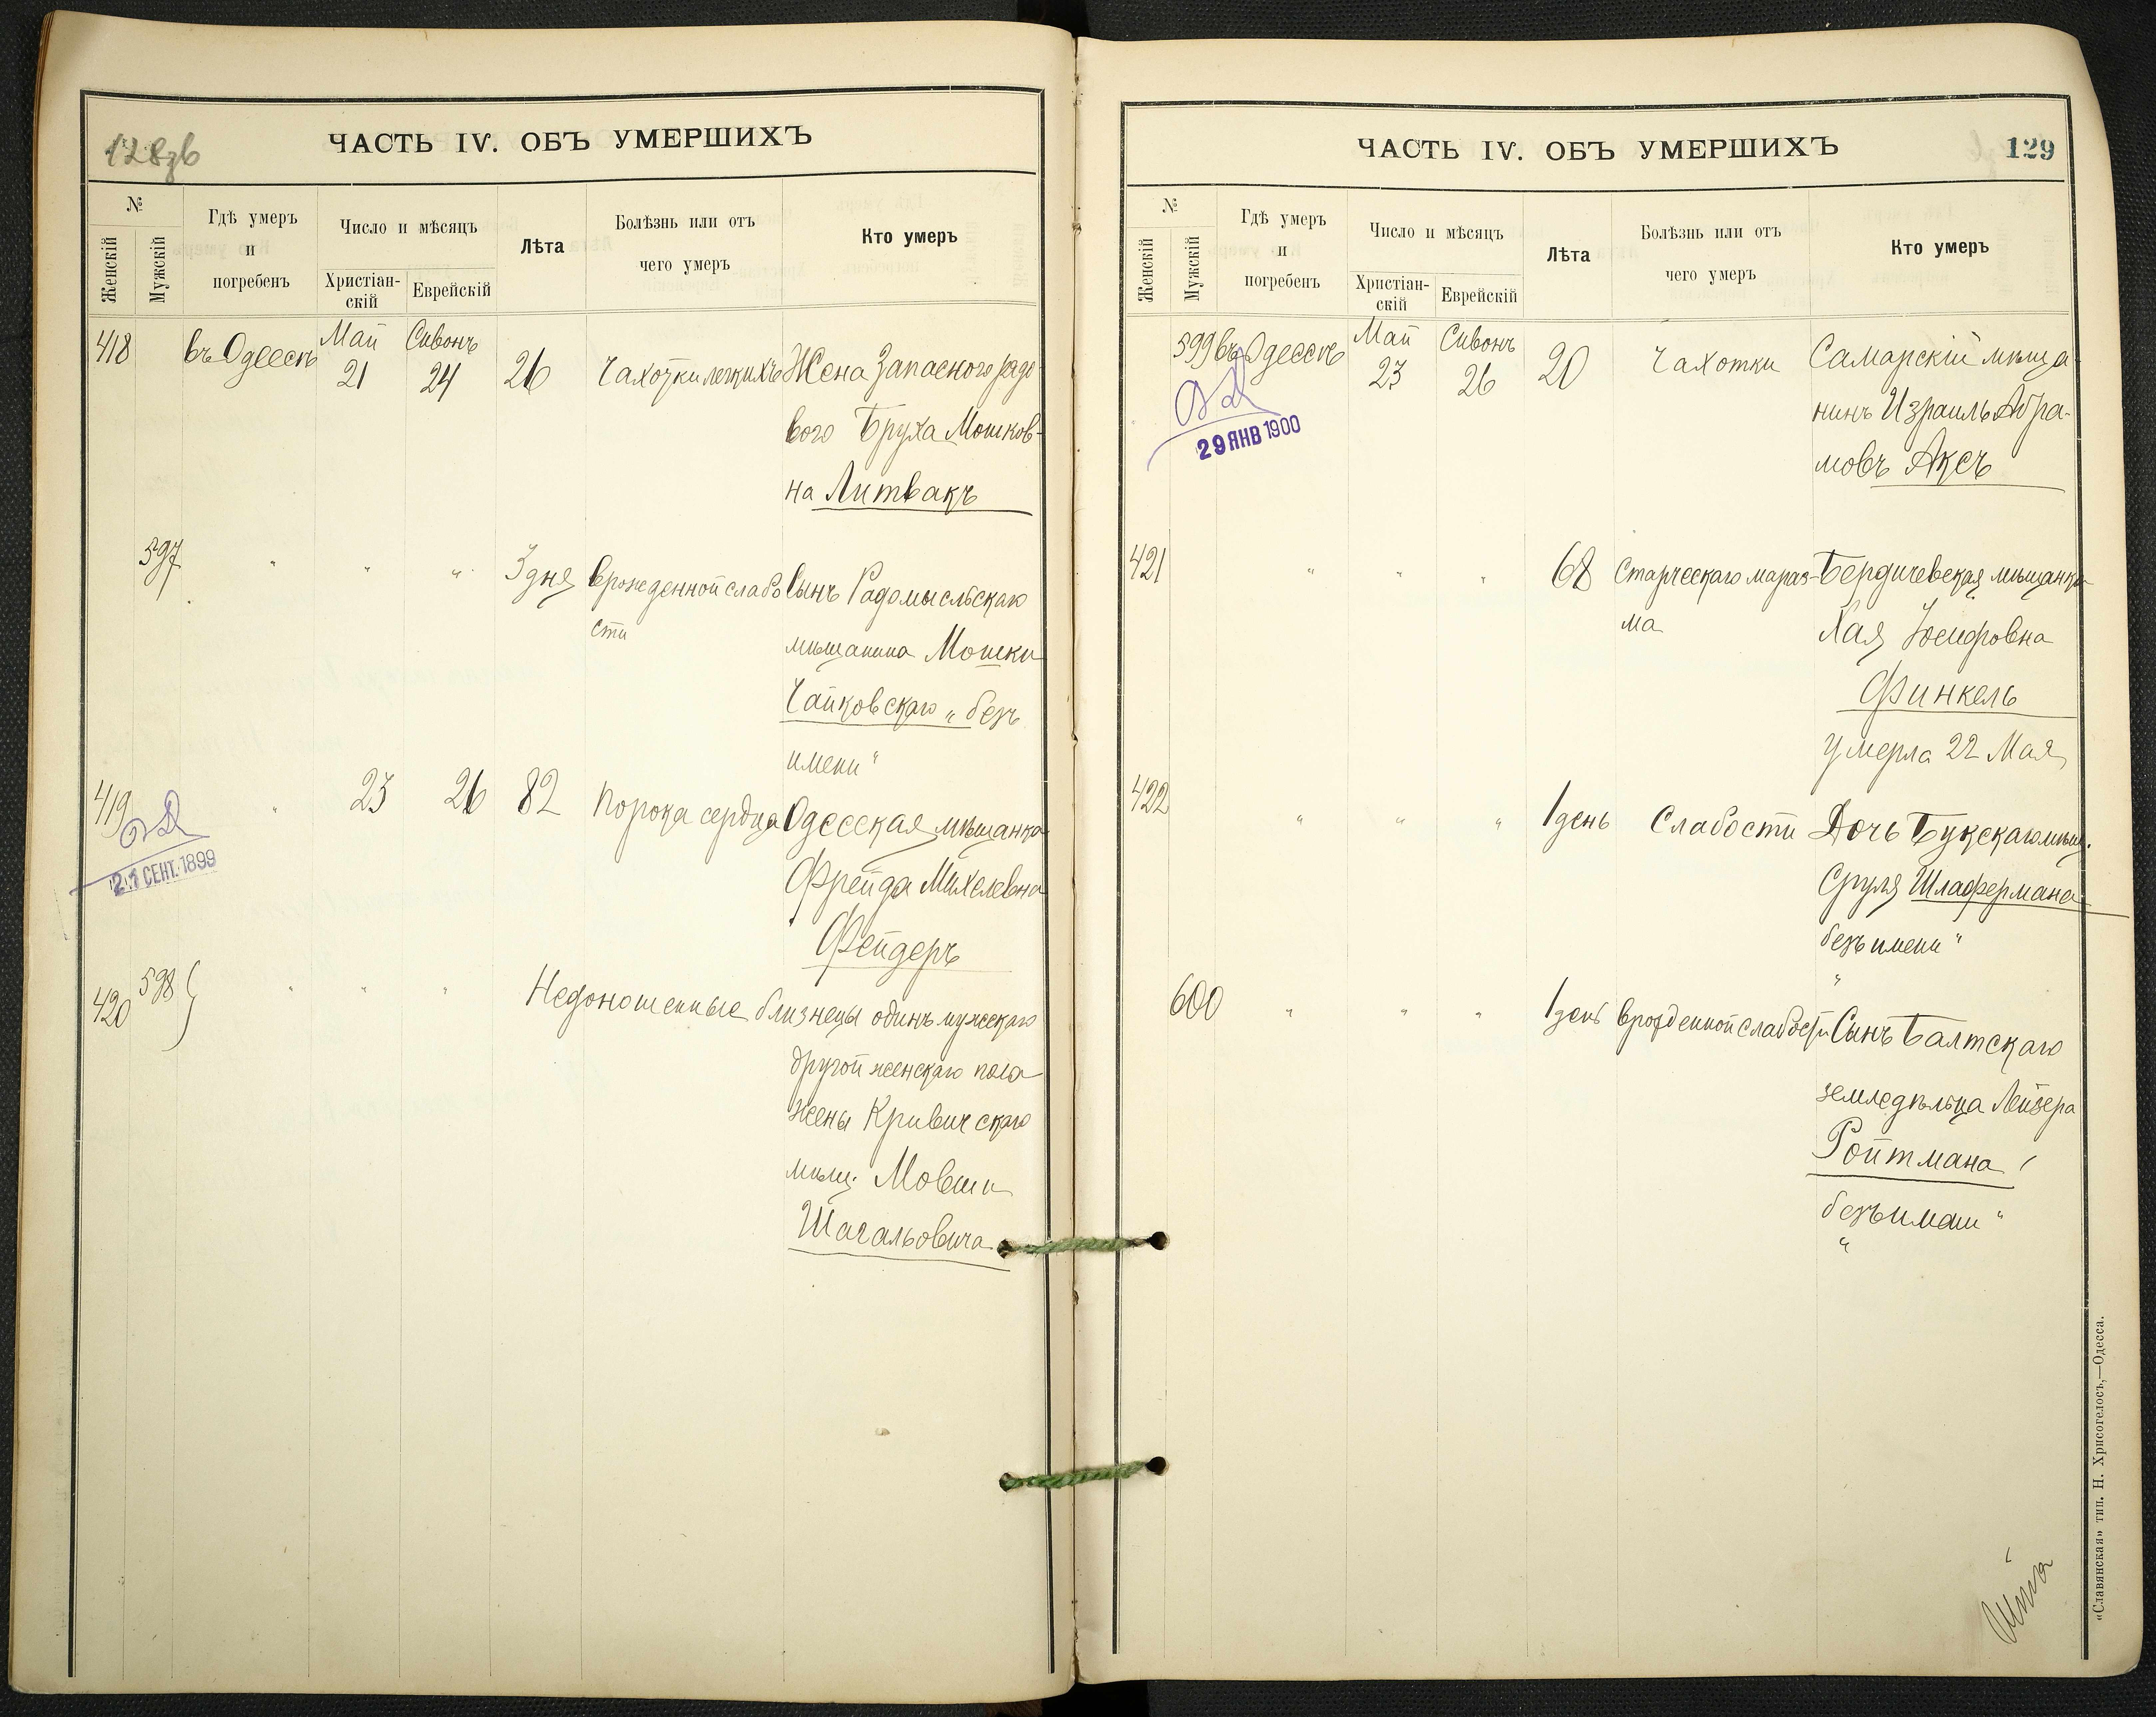 128об
ЧАСТЬ IV. ОБЪ УМЕРШИХЪ
№
Женскій
Мужскій
Гдѣ умеръ
и
погребенъ
Число и мѣсяцъ
Христіан-
скій
Еврейскій
Лѣта
Болѣзнь или отъ
чего умеръ
Кто умеръ
418 въ Одессѣ Май 21 Сивонъ 24 26 Чахотки легкихъ Жена Запасного рядо
вого Бруха Мошков-
на Литвакъ
597 " " " 3 дня Врожденной слабо Сынъ Радомысльскаго
сти
мѣщанина Мошки
Чайковскаго „безъ
имени“
419 " 23 26 82 порока сердца Одесская мѣщанка
Фрейда Михелевна
Фейдеръ
21 СЕНТ. 1899
420 598 " " " Недоношенные близнецы одинъ мужскаго
другой женскаго пола
жены Кривичскаго
мѣщ. Мовши
Шагальовича
ЧАСТЬ IV. ОБЪ УМЕРШИХЪ
129
№
Женскій
Мужскій
Гдѣ умеръ
и
погребенъ
Число и мѣсяцъ
Христіан-
скій
Еврейскій
Лѣта
Болѣзнь или отъ
чего умеръ
Кто умеръ
599 въ Одессѣ Май 23 Сивонъ 26 20 Чахотки Самарскій мѣща-
нинъ Израиль Абра-
мовъ Аксъ
29 ЯНВ 1900
421 " " " 68 Старческаго мараз- Бердичевская мѣщанка
ма Хая Іосифовна
Финкель
умерла 22 Мая
422 " " " 1 день Слабости Дочь Букскаго мѣщ.
Сруля Шлафермана
безъ имени“
„
600 " " " 1 день врожденной слабости Сынъ Балтскаго
земледѣльца Лейзера
Ройтмана
безъ имени“
„
«Славянская» тип. Н. Хрисогелосъ,—Одесса.